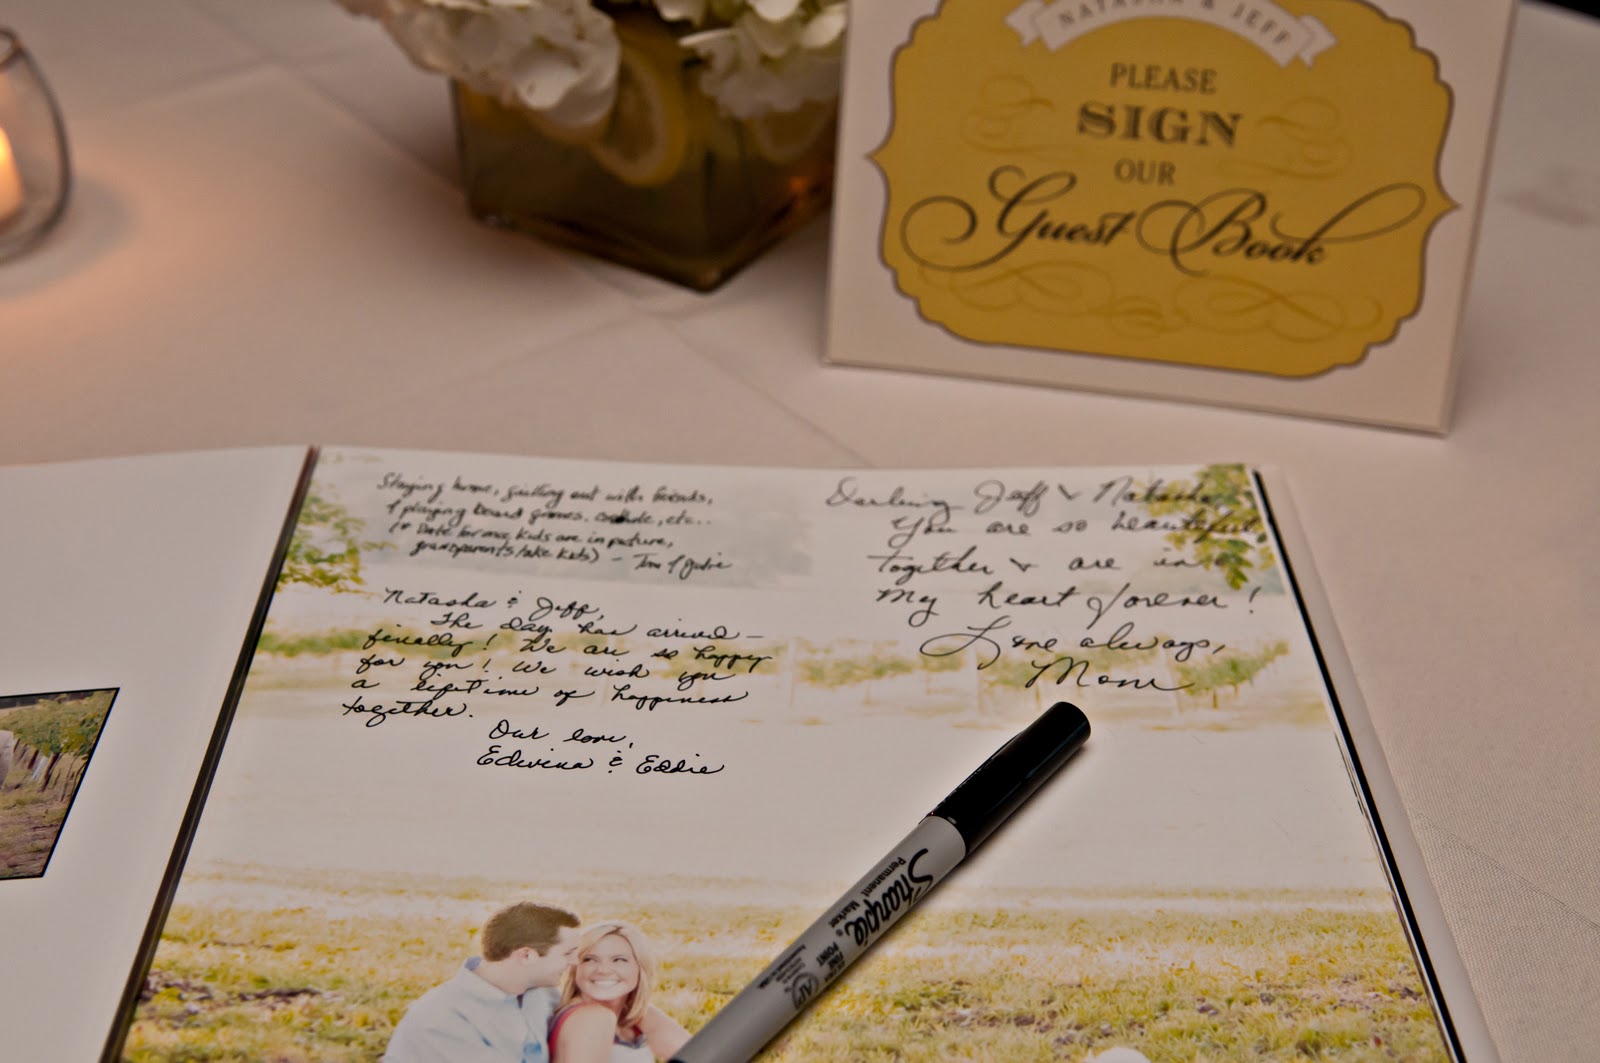 NATASHA & JEFF
PLEASE
SIGN
OUR
Guest Book
Staying home, quitting out with friends,
& playing board games. etc..
(* Date for once kids are in picture,
grandparents take kids) - Tim & Julie
Natasha & Jeff,
The day has arrived -
finally! We are so happy
for you! We wish you
a lifetime of happiness
together.
Our love,
Edwina & Eddie
Darling Jeff & Natasha
You are so beautiful
together & are in
my heart forever!
Love always,
Mom
Sharpie
Permanent
Marker
FINE
POINT
AP